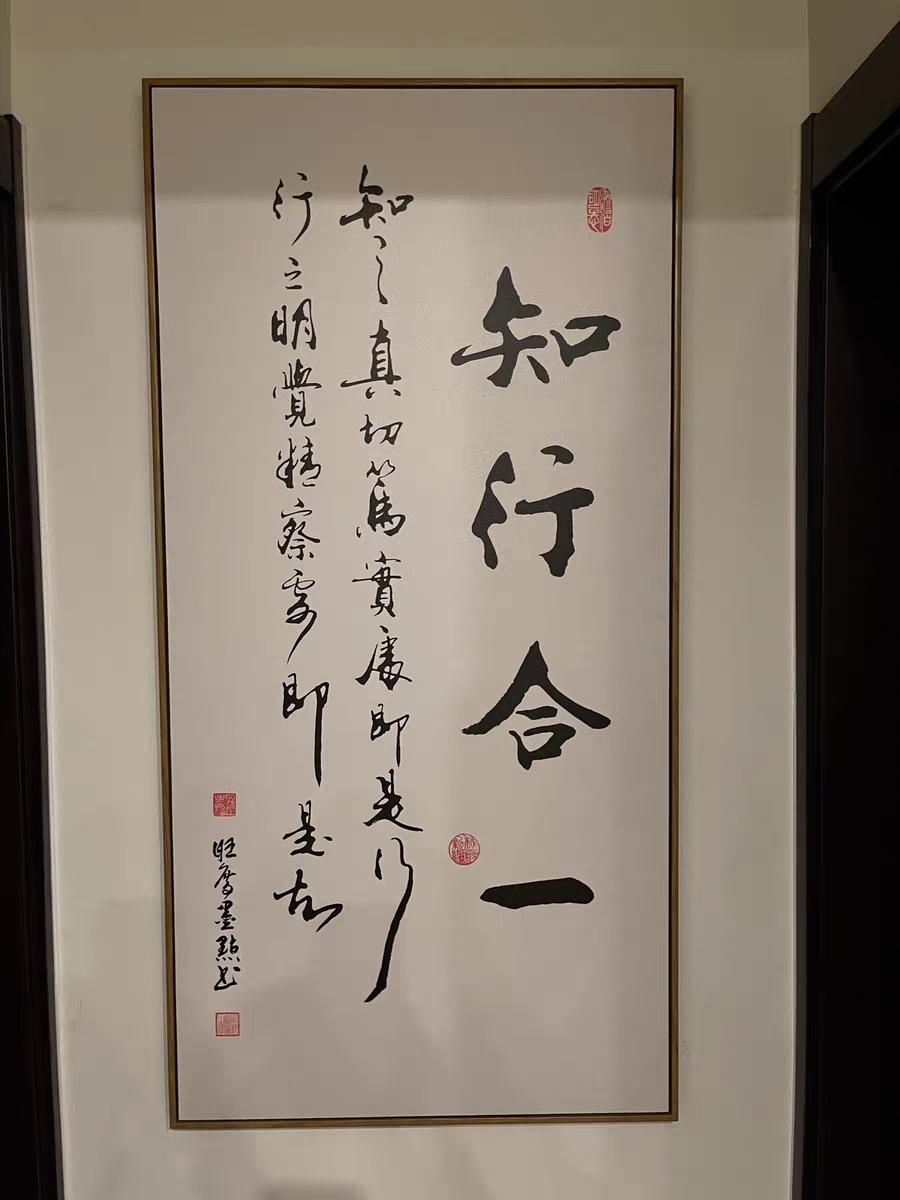 知行合一
知之真切篤實處即是行
行之明覺精察處即是知
旺墨點書